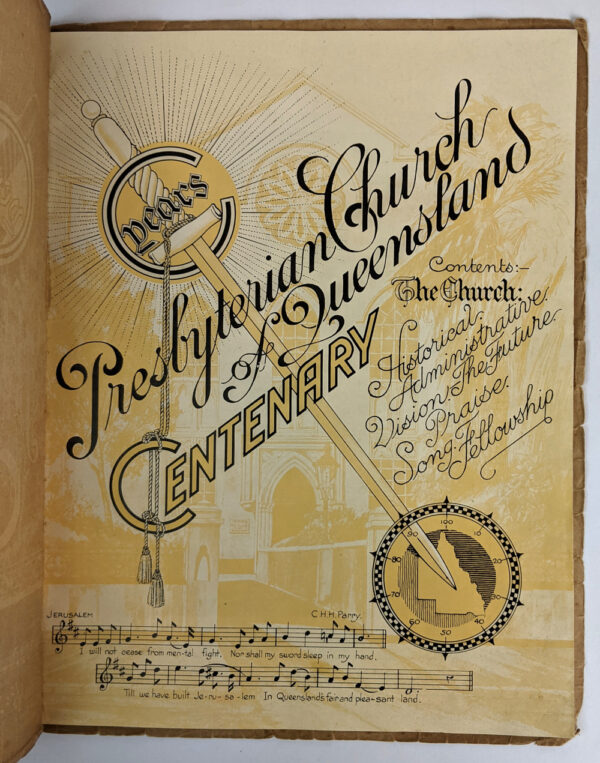 C years
Presbyterian Church
of Queensland
CENTENARY
Contents:-
The Church:
Historical.
Administrative.
Vision: The Future.
Praise.
Song: Fellowship
100
90 10
80 20
70 30
60 40
50
JERUSALEM C.H.H. Parry.
I will not cease from men-tal fight, Nor shall my sword sleep in my hand,
Till we have built Je-ru-sa-lem In Queensland's fair and plea-sant land.